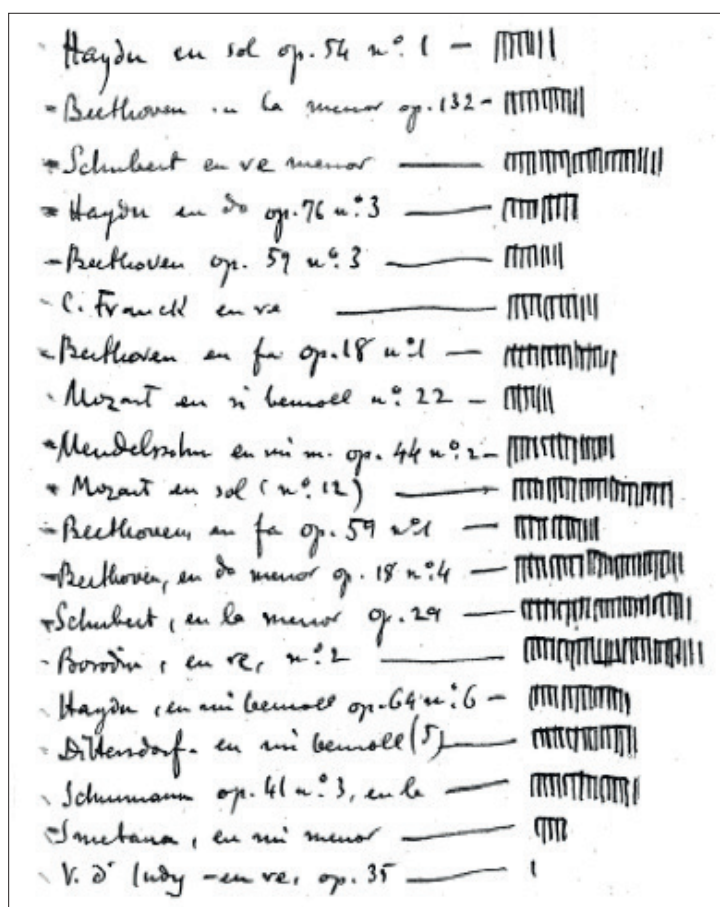 Haydn en sol op. 54 nº. 1 —
Beethoven en la menor op. 132 -
Schubert en re menor ——
Haydn en do op. 76 nº. 3 ——
Beethoven op. 59 nº. 3 ——
C. Franck en re ——
Beethoven en fa op. 18 nº 1 —
Mozart en si bemoll nº. 22 -
Mendelssohn en mi m. op. 44 nº. 2 -
Mozart en sol (nº. 12) ——
Beethoven, en fa op. 59 nº 1 —
Beethoven, en do menor op. 18 nº. 4 —
Schubert, en la menor op. 29 —
Borodin, en re, nº. 2 ——
Haydn, en mi bemoll op. 64 nº. 6 -
Dittersdorf. en mi bemoll (5) ——
Schumann op. 41 nº. 3, en la ——
Smetana, en mi menor ——
V. d' Indy - en re, op. 35 ——